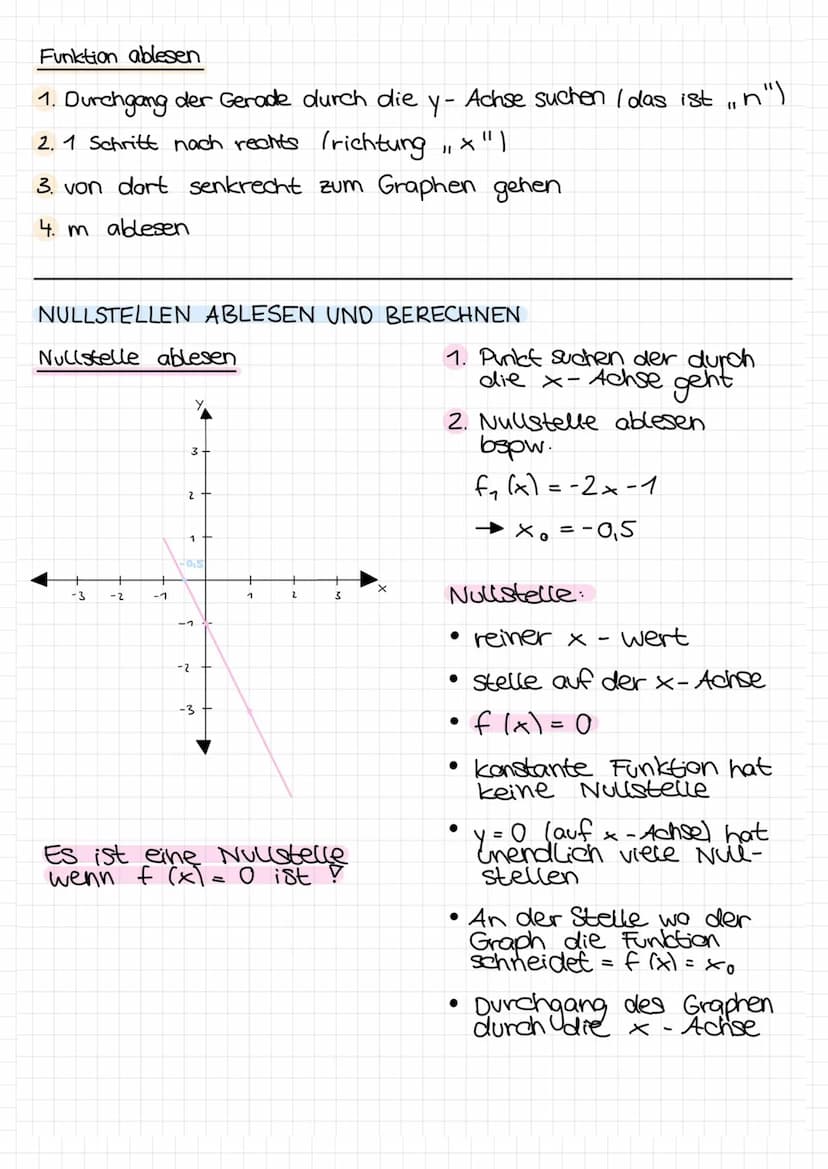 Funktion ablesen
1. Durchgang der Gerade durch die y- Achse suchen (das ist „n")
2. 1 Schritt nach rechts (richtung „x")
3. von dort senkrecht zum Graphen gehen
4. m ablesen
NULLSTELLEN ABLESEN UND BERECHNEN
Nullstelle ablesen
y
3
2
1
-0,5
-3 -2 -1 1 2 3 x
-1
-2
-3
Es ist eine Nullstelle
wenn f (x) = 0 ist !
1. Punkt suchen der durch
die x- Achse geht
2. Nullstelle ablesen
bspw.
f₁ (x) = -2x -1
→ x₀ = -0,5
Nullstelle:
• reiner x - wert
• stelle auf der x- Achse
• f (x) = 0
• konstante Funktion hat
keine Nullstelle
• y = 0 (auf x - Achse) hat
unendlich viele Null-
stellen
• An der Stelle wo der
Graph die Funktion
schneidet = f (x) = x₀
• Durchgang des Graphen
durch die x - Achse